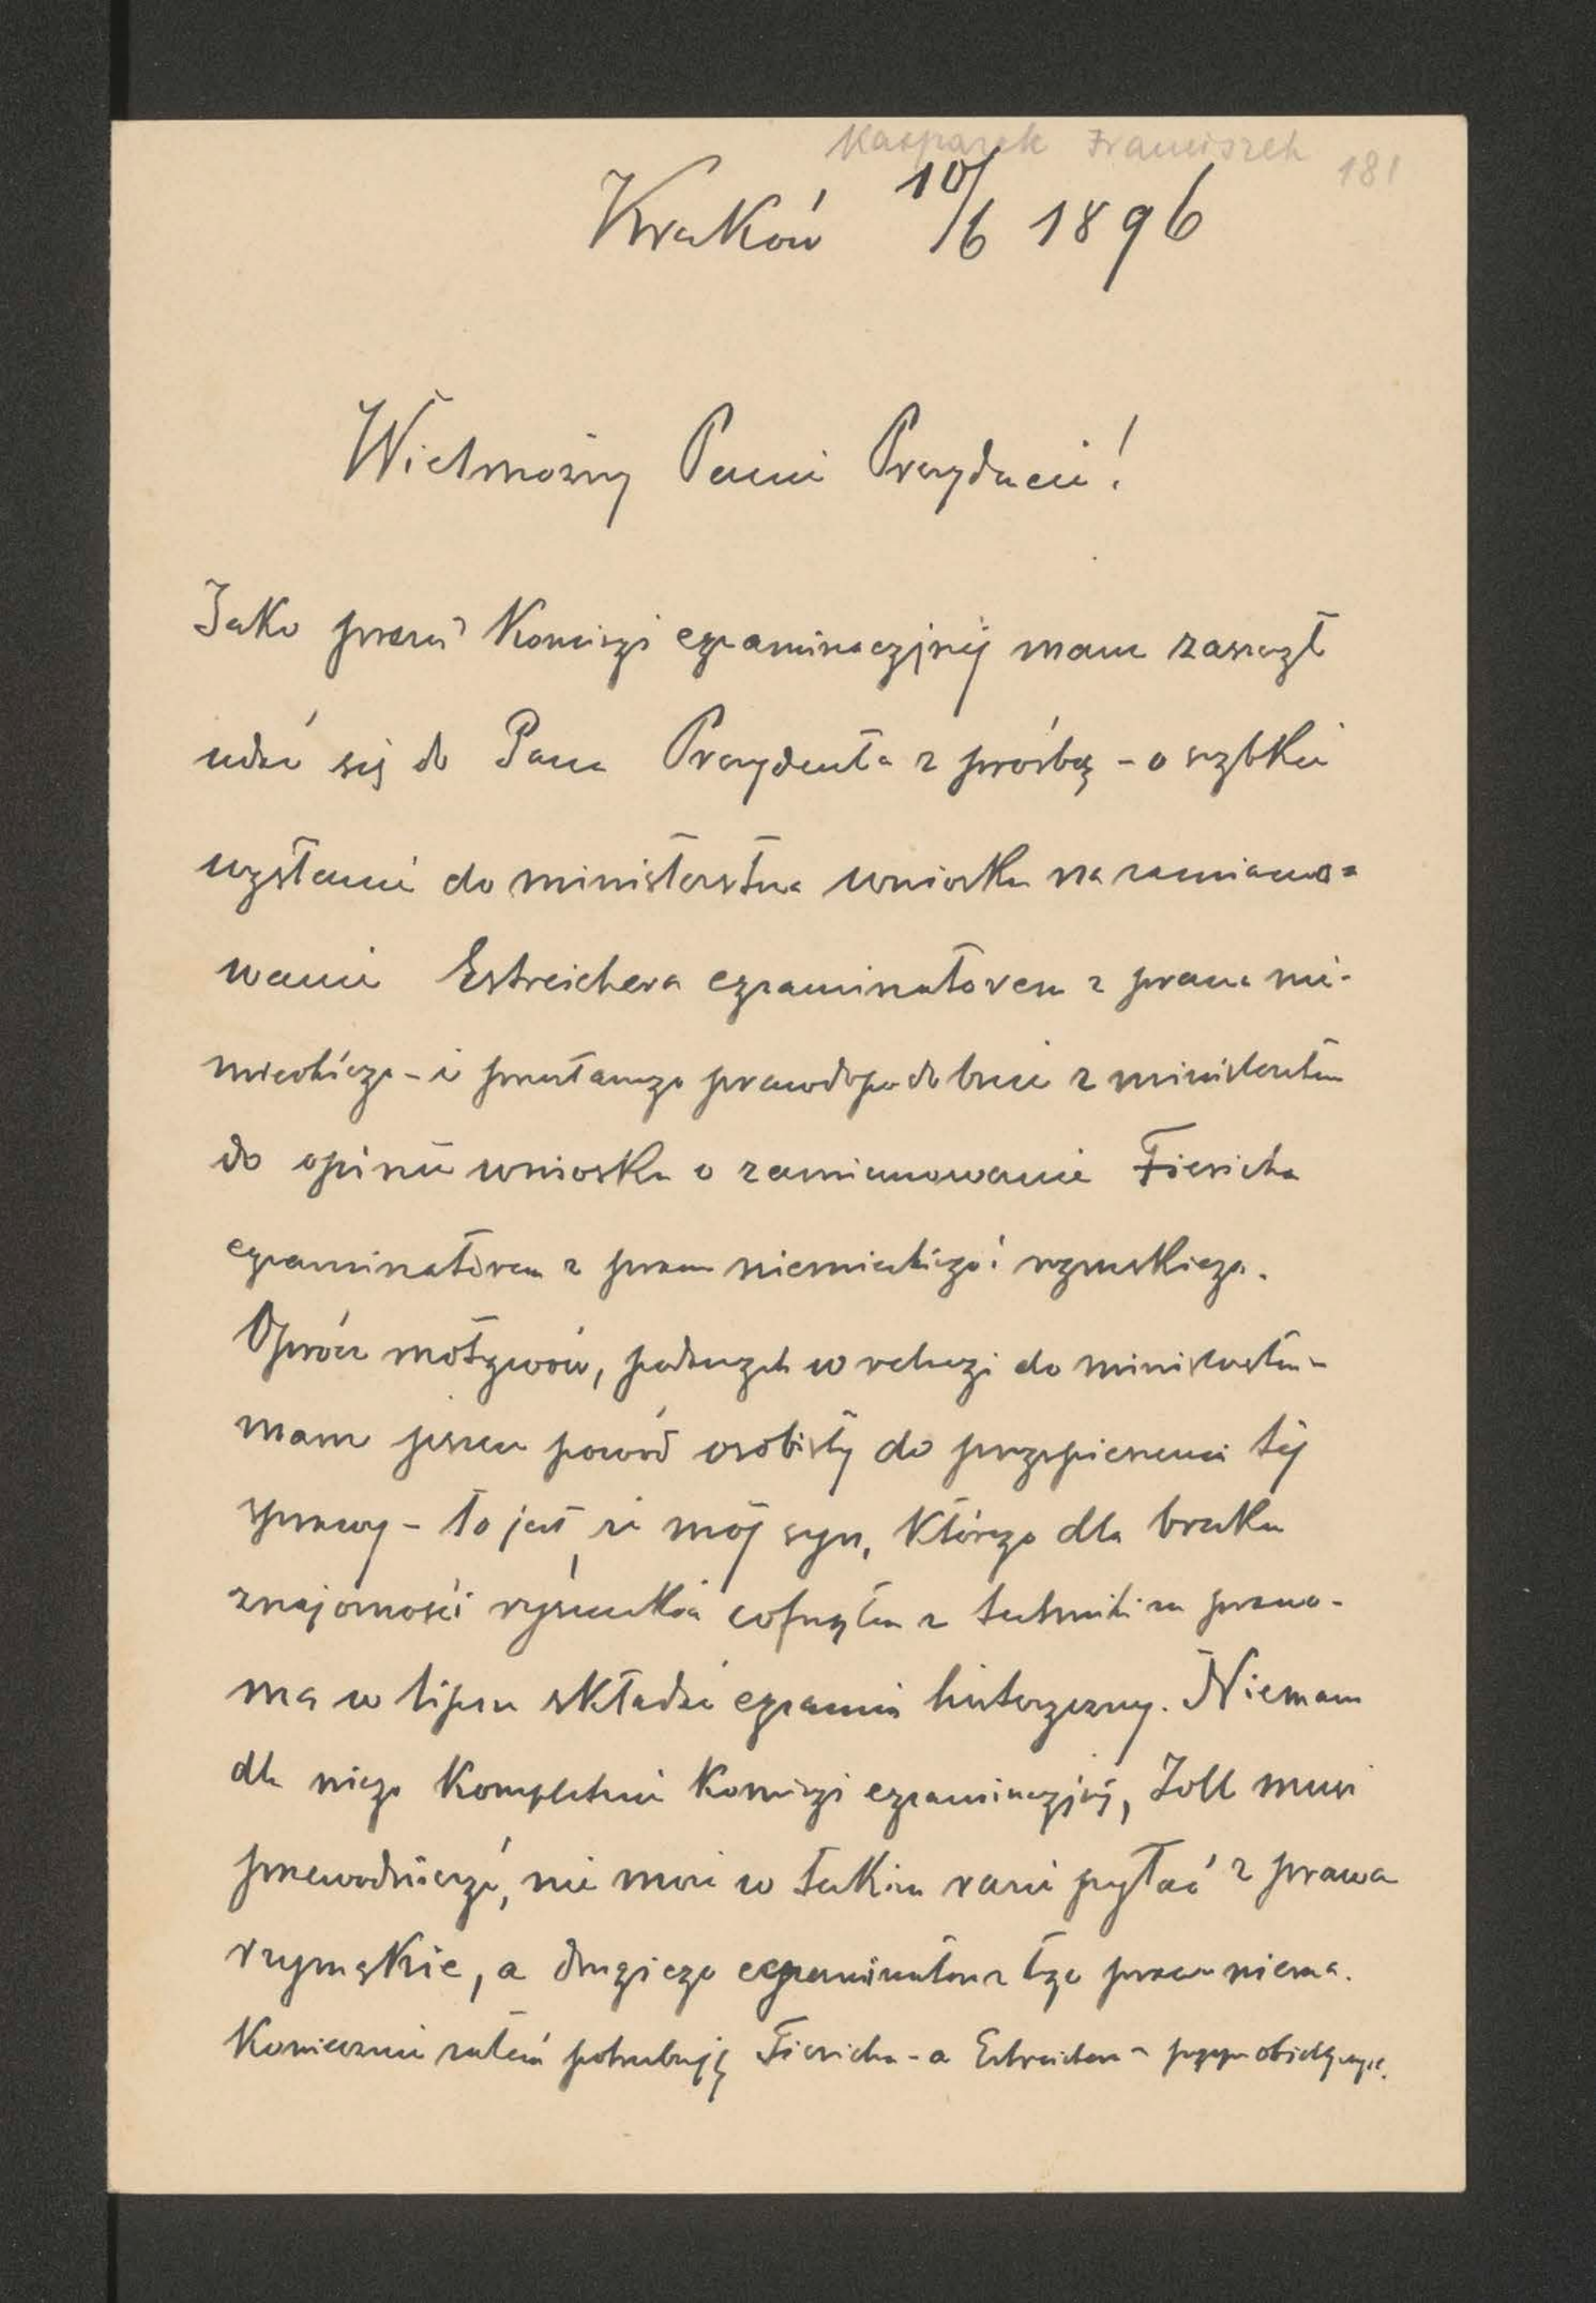 Kasparek Franciszek 181
Kraków 10/6 1896
Wielmożny Panie Prezydencie!
Jako prezes Komisyi egzaminacyjnej mam zaszczyt
udać się do Pana Prezydenta z prośbą - o szybkie
wysłanie do ministerstwa wniosku na zamiano=
wanie Estreichera egzaminatorem z prawa nie-
mieckiego - i przesłanego prawdopodobnie z ministerstwa
do opinii wniosku o zamianowanie Fiericha
egzaminatorem z prawa niemieckiego i rzymskiego.
Oprócz motywów, podanych w relacyi do ministerstwa -
mam jeszcze powód osobisty do przyspieszenia tej
sprawy - to jest, że mój syn, którego dla braku
znajomości rysunków cofnąłem z techniki na prawo -
ma w lipcu składać egzamin historyczny. Niemam
dla niego kompletnie Komisyi egzaminacyjnej, Zoll musi
przewodniczyć, nie może w takim razie pytać z prawa
rzymskie, a drugiego egzaminatora z tego prawa niema.
Koniecznie zatem potrzebuję Fiericha - a Estreichera -